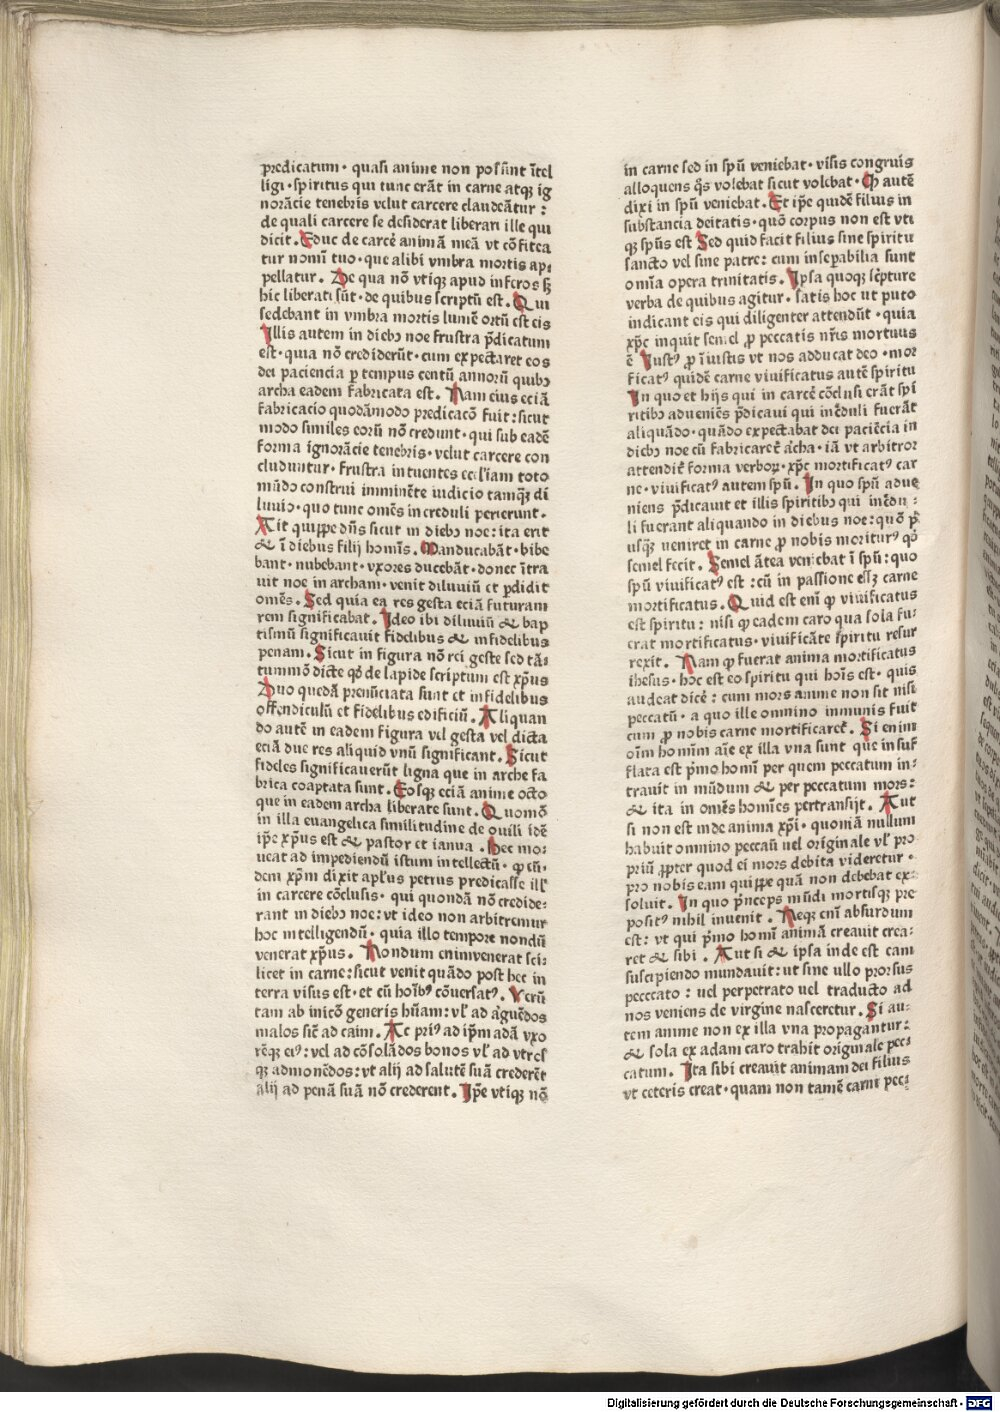 predicatum· quasi anime non possint ītel
ligi· spiritus qui tunc erāt in carne atqꝫ ig
norācie tenebris velut carcere claudeātur :
de quali carcere se desiderat liberari ille qui
dicit. Educ de carcē animā meā vt cōfitea
tur nomī tuo· que alibi vmbra mortis ap-
pellatur. De qua nō vtiqꝫ apud inferos sꝫ
hic liberati sūt· de quibus scriptū est. Qui
sedebant in vmbra mortis lumē ortū est eis
Illis autem in diebꝫ noe frustra p̄dicatum
est· quia nō crediderūt· cum expectaret eos
dei paciencia ꝑ tempus centū annorū quibꝫ
archa eadem fabricata est. Nam eius eciā
fabricacio quodāmodo predicacō fuit: sicut
modo similes eorū nō credunt· qui sub eadē
forma ignorācie tenebris· velut carcere con
cluduntur· frustra intuentes eccl'iam toto
mūdo construi imminēte iudicio tamqꝫ di
luuio· quo tunc omēs increduli perierunt·
Ait quippe dn̄s sicut in diebꝫ noe: ita erit
& ī diebus filij homīs. Manducabāt· bibe
bant· nubebant· vxores ducebāt· donec ītra
uit noe in archam· venit diluuiū et ꝑdidit
omēs. Sed quia ea res gesta eciā futuram
rem significabat. Ideo ibi diluuiū & bap
tismū significauit fidelibus & infidelibus
penam. Sicut in figura nō rei geste sed tā-
tummō dicte qd' de lapide scriptum est xp̄us
Duo quedā prenūciata sunt et infidelibus
offendiculū et fidelibus edificiū. Aliquan
do autē in eadem figura vel gesta vel dicta
eciā due res aliquid vnū significant. Sicut
fideles significauerūt ligna que in arche fa
brica coaptata sunt. Eosqꝫ eciā anime octo
que in eadem archa liberate sunt. Quomō
in illa euangelica similitudine de ouili idē
ip̄e xp̄us est & pastor et ianua. Nec mo-
ueat ad impediendū istum intellectū· ꝙ eū-
dem xp̄m dixit apl'us petrus predicasse ill'
in carcere cōclusis· qui quondā nō credide-
rant in diebꝫ noe: vt ideo non arbitremur
hoc intelligendū· quia illo tempore nondū
venerat xp̄us. Nondum enim venerat sci-
licet in carne: sicut venit quādo post hec in
terra visus est· et cū hoībꝰ cōuersatꝰ. Verū
tam ab inicō generis hūam: vl' ad arguēdos
malos sicē ad caim. Ac priꝰ ad ip̄m adā vxo
rēqꝫ eiꝰ: vel ad cōsolādos bonos vl' ad vtrosꝫ
qꝫ admonēdos: vt alij ad salutē suā crederēt
alij ad penā suā nō crederent. Ip̄e vtiqꝫ nō
in carne sed in sp̄u veniebat· visis congruis
alloquens q̄s volebat sicut volebat· Qd' autē
dixi in sp̄u veniebat. Et ip̄e quidē filius in
substancia deitatis· quō corpus non est vti
qꝫ sp̄us est Sed quid facit filius sine spiritu
sancto vel sine patre: cum inseꝑabilia sunt
omīa opera trinitatis. Ipsa quoqꝫ sc̄pture
verba de quibus agitur· satis hoc ut puto
indicant eis qui diligenter attendūt· quia
xp̄c inquit semel ꝓ peccatis nr̄is mortuus
ē Iustꝰ ꝓ īiustis vt nos adducat deo· mor
ficatꝰ quidē carne viuificatus autē spiritu
In quo et hijs qui in carcē cōclusi erāt spi
ritibꝫ adueniēs p̄dicauit qui incēduli fuerāt
aliquādo· quādo expectabat dei paciēcia in
diebꝫ noe cū fabricarēt archa· iā vt arbitror
attendit' forma verboꝝ· xp̄c mortificatꝰ car
ne· viuificatꝰ autem sp̄u. In quo sp̄u adue
niens p̄dicauit et illis spiritibꝫ qui incēdu-
li fuerant aliquando in diebus noe: quō pꝰ
usqꝫ veniret in carne ꝓ nobis moriturꝰ qd'
semel fecit. Semel ātea veniebat ī sp̄u: quo
sp̄u viuificatꝰ est: cū in passione essꝫ carne
mortificatus. Quid est enī ꝙ viuificatus
est spiritu: nisi ꝙ eadem caro qua sola fu-
erat mortificatus· viuificāte spiritu resur
rexit. Nam ꝙ fuerat anima mortificatus
ihesus· hoc est eo spiritu qui hoīs est· quis
audeat dicē: cum mors anime non sit nisi
peccatū· a quo ille omnino inmunis fuit
cum ꝓ nobis carne mortificaret'. Si enim
oīm homīm aīe ex illa vna sunt que insuf
flata est p̄mo homī per quem peccatum in-
trauit in mūdum & per peccatum mors:
& ita in omēs homīes pertransijt. Aut
si non est inde anima xp̄i· quoniā nullum
habuit omnino peccatū uel originale vl' pro
priū ꝓpter quod ei mors debita videretur·
pro nobis eam quippe quā non debebat ex-
soluit. In quo p̄nceps mūdi mortisqꝫ pre
positꝰ nihil inuenit. Neqꝫ enī absurdum
est: vt qui p̄mo homī animā creauit crea-
ret & sibi. Aut si & ipsa inde est eam
suscipiendo mundauit: ut sine ullo prorsus
peccato: uel perpetrato uel traducto ad
nos veniens de virgine nasceretur. Si au-
tem anime non ex illa vna propagantur:
& sola ex adam caro trahit originale pec-
catum. Ita sibi creauit animam dei filius
vt ceteris creat· quam non tamē carni pec-
Digitalisierung gefördert durch die Deutsche Forschungsgemeinschaft - DFG